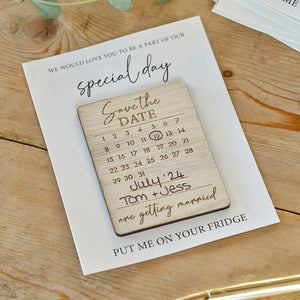 WE WOULD LOVE YOU TO BE A PART OF OUR
special day
Save the
DATE
1 2 3 4 5 6 7
8 9 10 11 12 13 14
15 16 17 18 19 20 21
22 23 24 25 26 27 28
29 30 31
July '24
Tom + Jess
are getting married
PUT ME ON YOUR FRIDGE